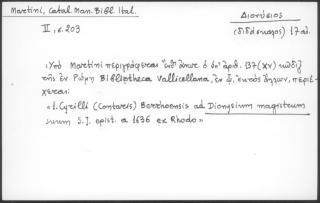 Martini, Catal. Man. Bibl. Ital.
Διονύσιος
II, σ. 203
(διδάσκαλος) 17 αἰ.
Ὑπὸ Martini περιγράφεται ὑπ' ἀριθ. 137 (XV) κῶδιξ
τῆς ἐν Ρώμῃ Bibliotheca Vallicellana, ἐν ᾧ, ἐκτὸς ἄλλων, περιέ-
χεται:
«1. Cyrilli (Contaris) Berrhoensis ad Dionysium magistrum
suum S.J. epist. a 1636 ex Rhodo»